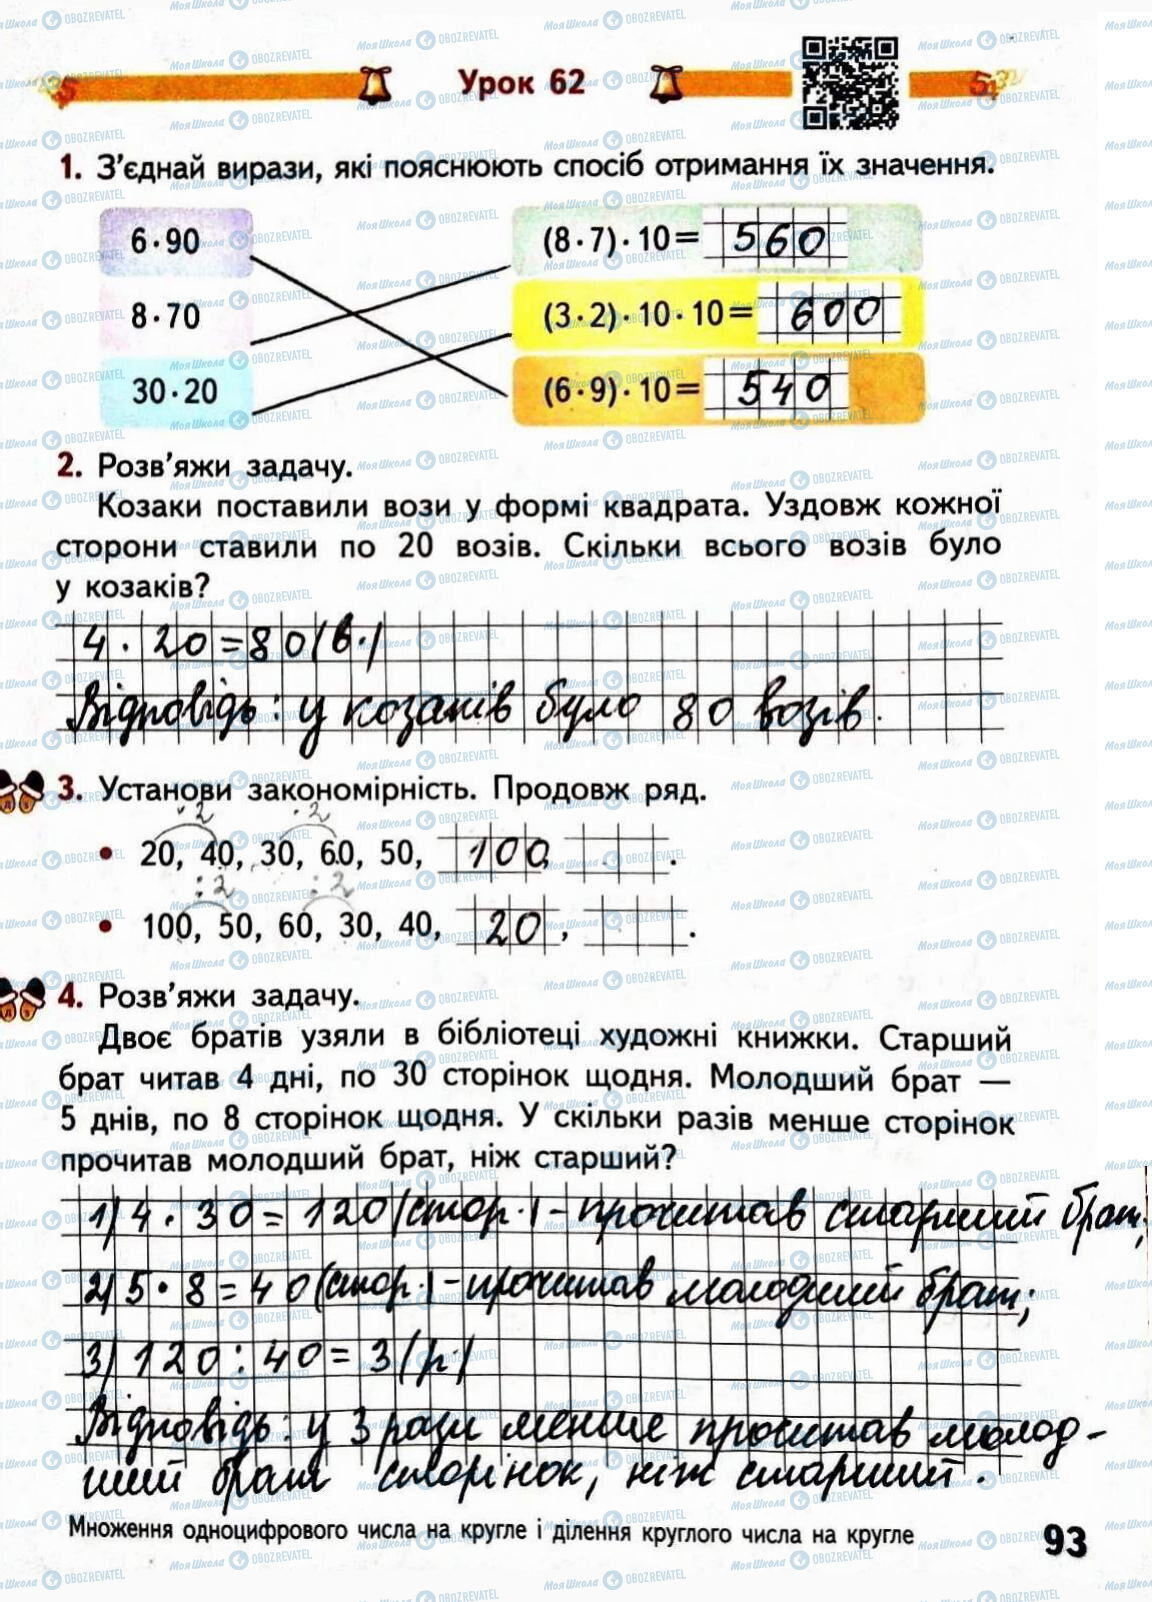 Урок 62
1. З'єднай вирази, які пояснюють спосіб отримання їх значення.
6·90
(8·7)·10= 560
8·70
(3·2)·10·10= 600
30·20
(6·9)·10= 540
2. Розв'яжи задачу.
Козаки поставили вози у формі квадрата. Уздовж кожної
сторони ставили по 20 возів. Скільки всього возів було
у козаків?
4·20=80(в.)
Відповідь: у козаків було 80 возів.
3. Установи закономірність. Продовж ряд.
·2 ·2
• 20, 40, 30, 60, 50, 100, .
:2 :2
• 100, 50, 60, 30, 40, 20, .
4. Розв'яжи задачу.
Двоє братів узяли в бібліотеці художні книжки. Старший
брат читав 4 дні, по 30 сторінок щодня. Молодший брат —
5 днів, по 8 сторінок щодня. У скільки разів менше сторінок
прочитав молодший брат, ніж старший?
1) 4·30=120(стор.)-прочитав старший брат;
2) 5·8=40(стор.)-прочитав молодший брат;
3) 120:40=3(р.)
Відповідь: у 3 рази менше прочитав молод-
ший брат сторінок, ніж старший.
Множення одноцифрового числа на кругле і ділення круглого числа на кругле
93
МояШкола OBOZREVATEL